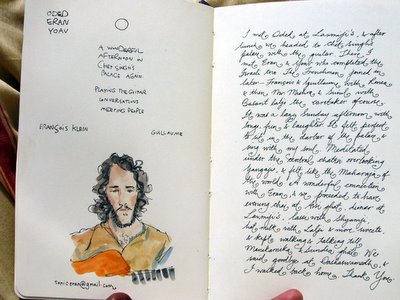 ODED
ERAN
YOAV
A WONDERFUL
AFTERNOON IN
CHET SINGH'S
PALACE AGAIN.
PLAYING THE GUITAR
CONVERSATIONS
MEETING PEOPLE
FRANÇOIS KLEIN
GUILLAUME
@gmail.com
I met Oded at Laxmiji's, & after
lunch we headed to Chet Singh's
palace with the guitar. There I
met Eran & Yoav who completed the
Israeli trio. The Frenchmen joined in
later - Francois & Guillaume, with
& then & Sumit with
Basant Lalji the caretaker ofcourse.
It was a lazy Sunday afternoon with
songs, fun & laughter. It felt perfect
to sit in the darbar of the palace &
sing with my soul. Meditated
under the central chatri overlooking
Gangaji & felt like the Maharaja of
my world. A wonderful connection
with Eran, & we proceeded to have
evening chai at Assi ghat, dinner at
Laxmiji's, lassi with Shyamji,
hot milk with Lalji & more sweets
& kept walking & talking till
Manikarnika & Scindia ghats. We
said goodbye at Dashaswamedh, &
I walked back home. Thank You.